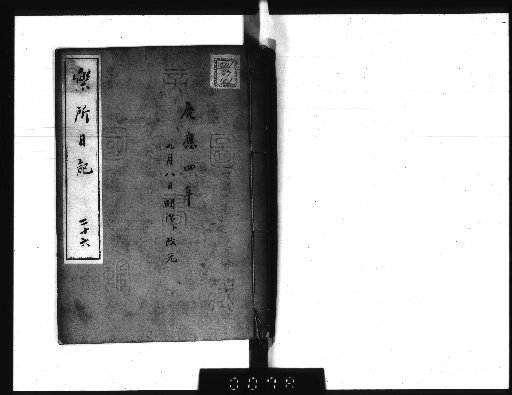 慶應四年
九月八日明治ト改元
樂所日記
二十六
0078